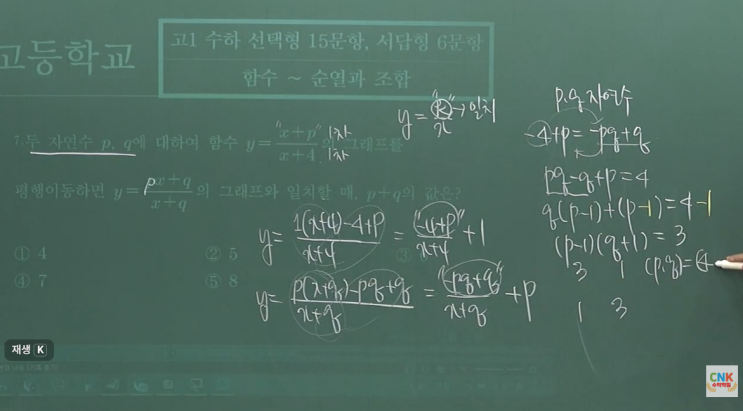 고등학교
고1 수하 선택형 15문항, 서답형 6문항
함수 ~ 순열과 조합
7. 두 자연수 p, q에 대하여 함수 y = "x+p"/x+4 의 그래프를
1차
1차
평행이동하면 y = px+q/x+q 의 그래프와 일치할 때, p+q의 값은?
① 4
② 5
③
④ 7
⑤ 8
y = "k"/x → 일치
y = 1(x+4)-4+p/x+4 = "-4+p"/x+4 + 1
y = p(x+q)-pq+q/x+q = "-pq+q"/x+q + p
p, q 자연수
-4+p = -pq+q
pq-q+p=4
q(p-1)+(p-1)=4-1
(p-1)(q+1)=3
3 1 (p,q)=(4
1 3
재생 K
CNK
수학학원